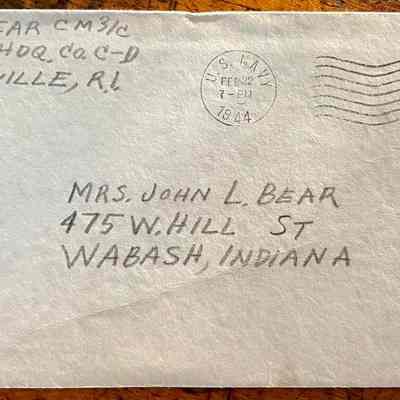 EAR CM 3/C
HDQ. CO. C-D
VILLE, R.I.
U.S. NAVY
FEB 22
7-PM
1944
MRS. JOHN L. BEAR
475 W. HILL ST
WABASH, INDIANA